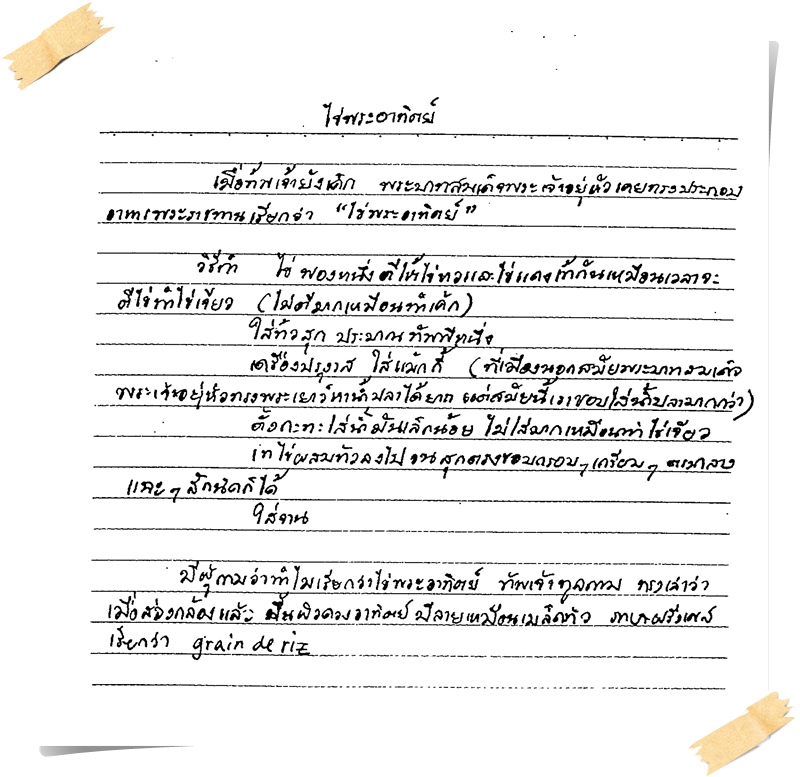 ไข่พระอาทิตย์
เมื่อข้าพเจ้ายังเด็ก พระบาทสมเด็จพระเจ้าอยู่หัวเคยทรงประกอบ
อาหารพระราชทานเรียกว่า "ไข่พระอาทิตย์"
วิธีทำ ไข่ ฟองหนึ่ง ตีให้ไข่ขาวและไข่แดงเข้ากันเหมือนเวลาจะ
ตีไข่ทำไข่เจียว (ไม่ตีมากเหมือนทำเค้ก)
ใส่ข้าวสุก ประมาณ ทัพพีหนึ่ง
เครื่องปรุงรส ใส่แม้กกี้ (ที่เมืองนอกสมัยพระบาทสมเด็จ
พระเจ้าอยู่หัวทรงพระเยาว์หาน้ำปลาได้ยาก แต่สมัยนี้เราชอบใส่น้ำปลามากกว่า)
ตั้งกะทะใส่น้ำมันเล็กน้อย ไม่ใส่มากเหมือนทำไข่เจียว
เทไข่ผสมข้าวลงไป จนสุกตรงขอบกรอบๆ เกรียมๆ ตรงกลาง
แฉะๆ สักนิดก็ได้
ใส่จาน
มีผู้ถามว่าทำไมเรียกว่าไข่พระอาทิตย์ ข้าพเจ้าทูลถาม ทรงเล่าว่า
เมื่อส่องกล้องแล้ว พื้นผิวดวงอาทิตย์ มีลายเหมือนเมล็ดข้าว ภาษาฝรั่งเศส
เรียกว่า grain de riz